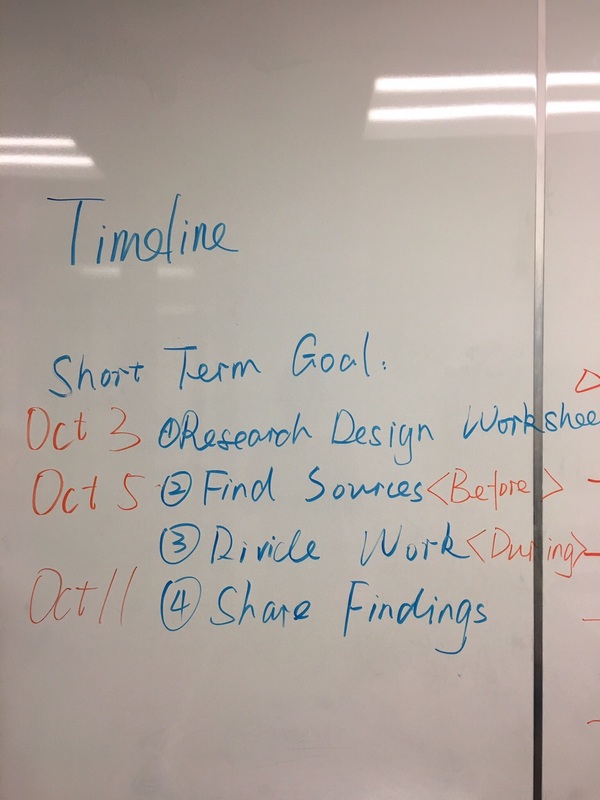 Timeline
Short Term Goal:
Oct 3 ①Research Design Workshee
Oct 5 ② Find Sources <Before>
③ Divide Work <During>
Oct 11 ④ Share Findings